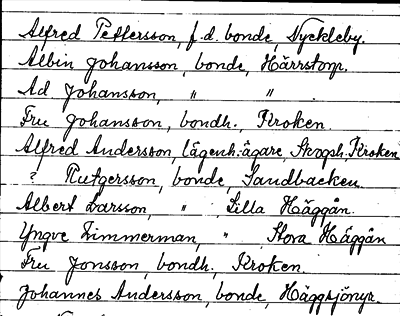 Alfred Pettersson, f.d. bonde, Nyckleby.
Albin Johansson, bonde, Härrstorp.
Ad Johansson, " "
Fru Johansson, bondh., Kroken.
Alfred Andersson, lägenh.ägare, Skogsh, Kroken
? Rutgersson, bonde, Sandbacken.
Albert Larsson, " Lilla Häggån.
Yngve Zimmerman, " Stora Häggån
Fru Jonsson, bondh., Kroken.
Johannes Andersson, bonde, Häggsjöryr.